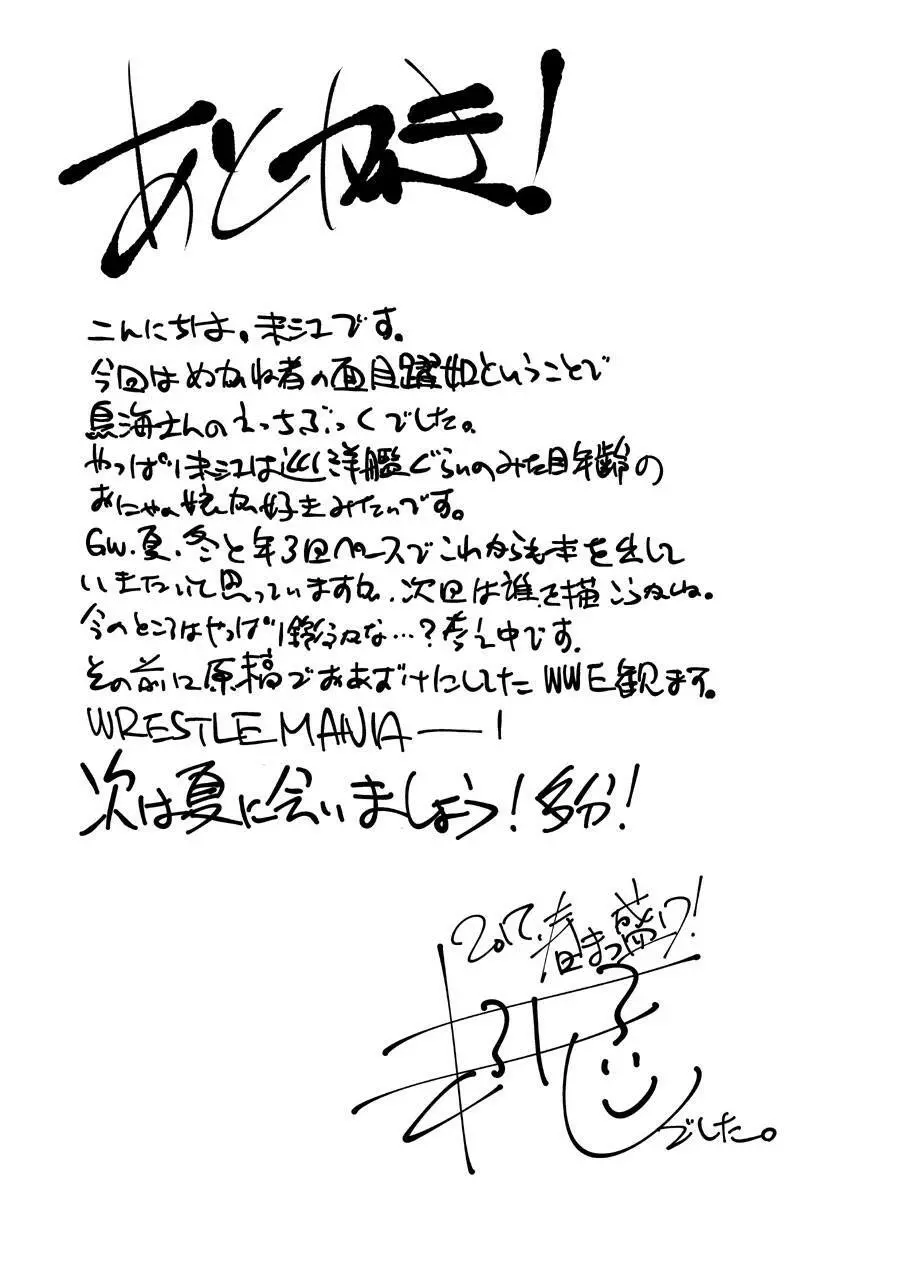 あとがき!
こんにちは。末江です。
今回はめがね者の面目躍如ということで
鳥海さんのえっちぶっくでした。
やっぱり末江は巡洋艦ぐらいのみた目年齢の
おにゃの娘が好きみたいです。
GW、夏、冬と年3回ペースでこれからも本を出して
いきたいって思っていますが、次回は誰を描こうかしら。
今のところはやっぱり鈴谷かな…?考え中です。
その前に原稿でおあずけにしてたWWE観ます。
WRESTLE MANIA――!
次は夏に会いましょう!多分!
2017.春まっ盛り!
でした。